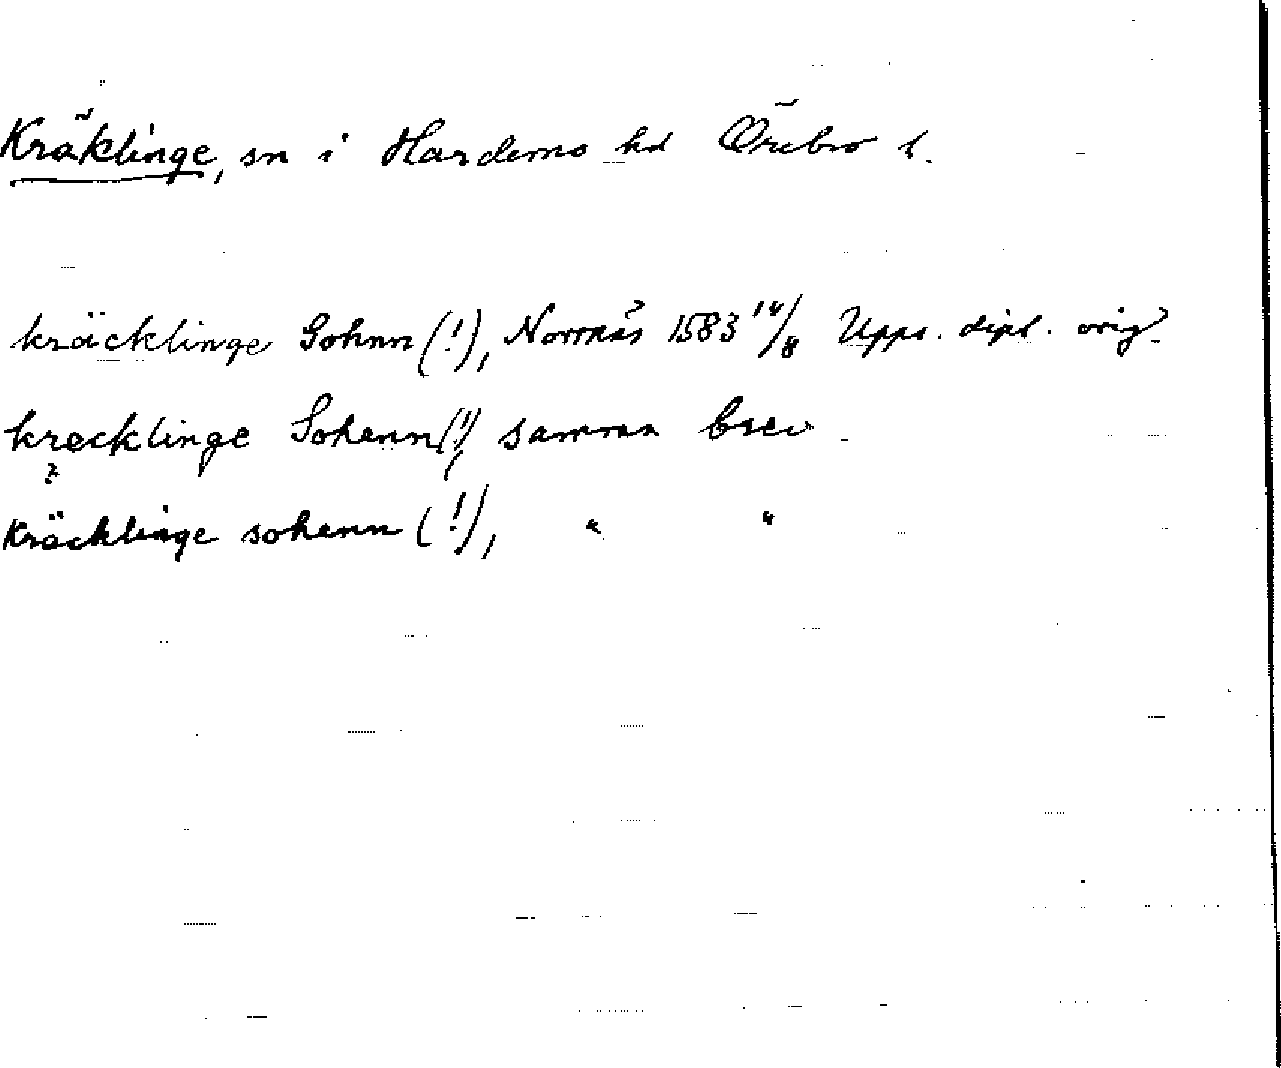 Kräklinge, sn i Hardemo hd Örebro l.
kräcklinge Sohnn (!), Norrnäs 1583 14/8 Upps. dipl. orig.
kræcklinge Sohenn (!) samma brev
kräcklinge sohenn (!), " "